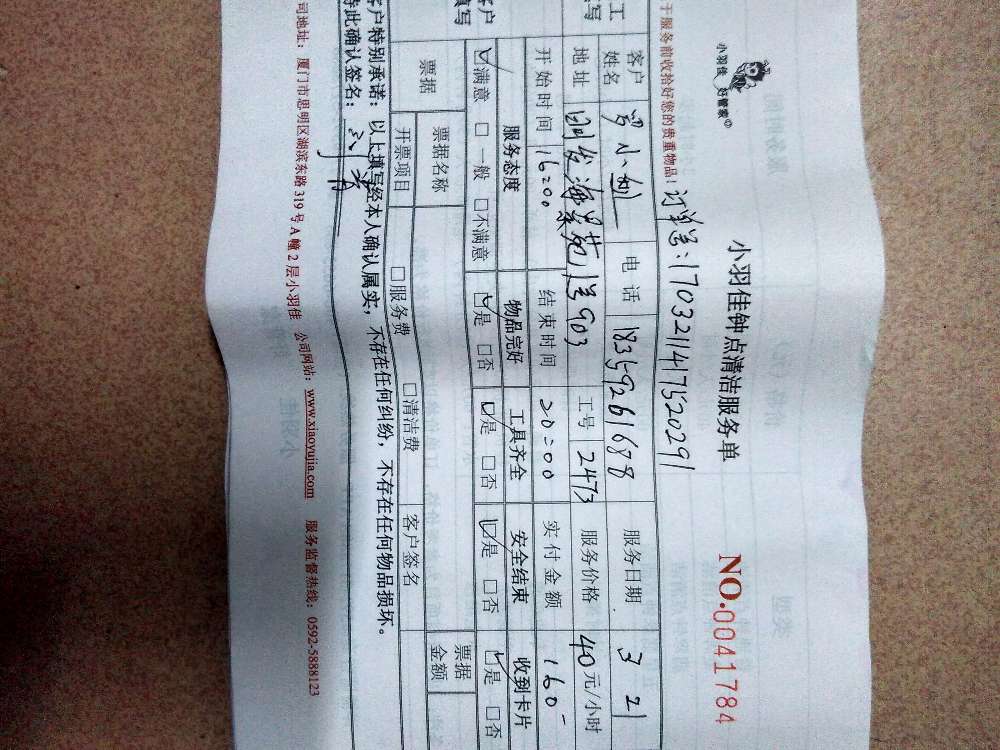 小羽佳 好管家
小羽佳钟点清洁服务单
NO.0041784
于服务前收拾好您的贵重物品！ 订单号：1703211417520291
工 客户姓名 电话 18359261688 服务日期 3 21
填写 地址 海景苑 1号903 工号 2473 服务价格 40元/小时
开始时间 16:00 结束时间 20:00 实付金额 160-
客户 服务态度 物品完好 工具齐全 安全结束 收到卡片
填写 ☑满意 □一般 □不满意 ☑是 □否 ☑是 □否 ☑是 □否 ☑是 □否
票据 票据名称 票据金额
开票项目 □服务费 □清洁费 客户签名
客户特别承诺：以上填写经本人确认属实，不存在任何纠纷，不存在任何物品损坏。
特此确认签名：
司地址：厦门市思明区湖滨东路319号A幢2层小羽佳 公司网站：www.xiaoyujia.com 服务监督热线：0592-5888123